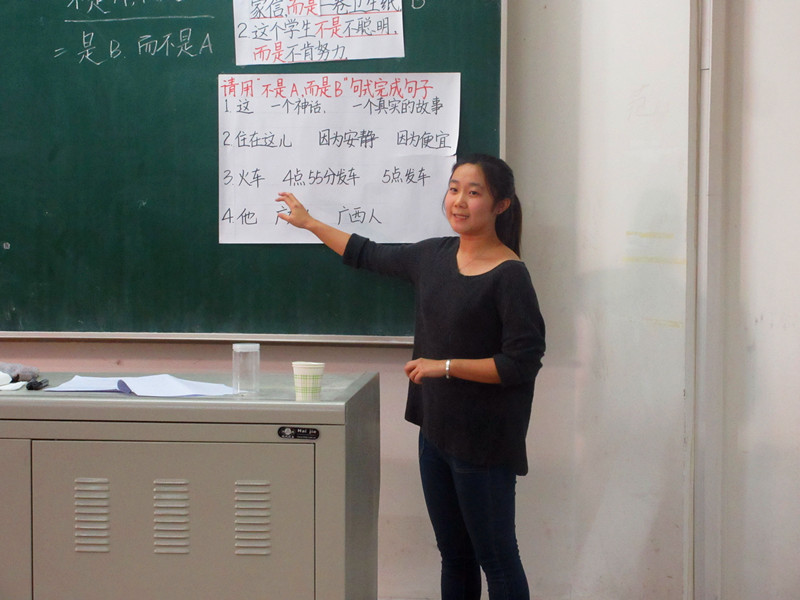 = 是B,而不是A
家信,而是一卷卫生纸. B
2.这个学生不是不聪明,
而是不肯努力.
请用"不是A,而是B"句式完成句子
1.这 一个神话, 一个真实的故事
2.住在这儿 因为安静 因为便宜
3.火车 4点55分发车 5点发车
4.他 广 广西人
Hai jie